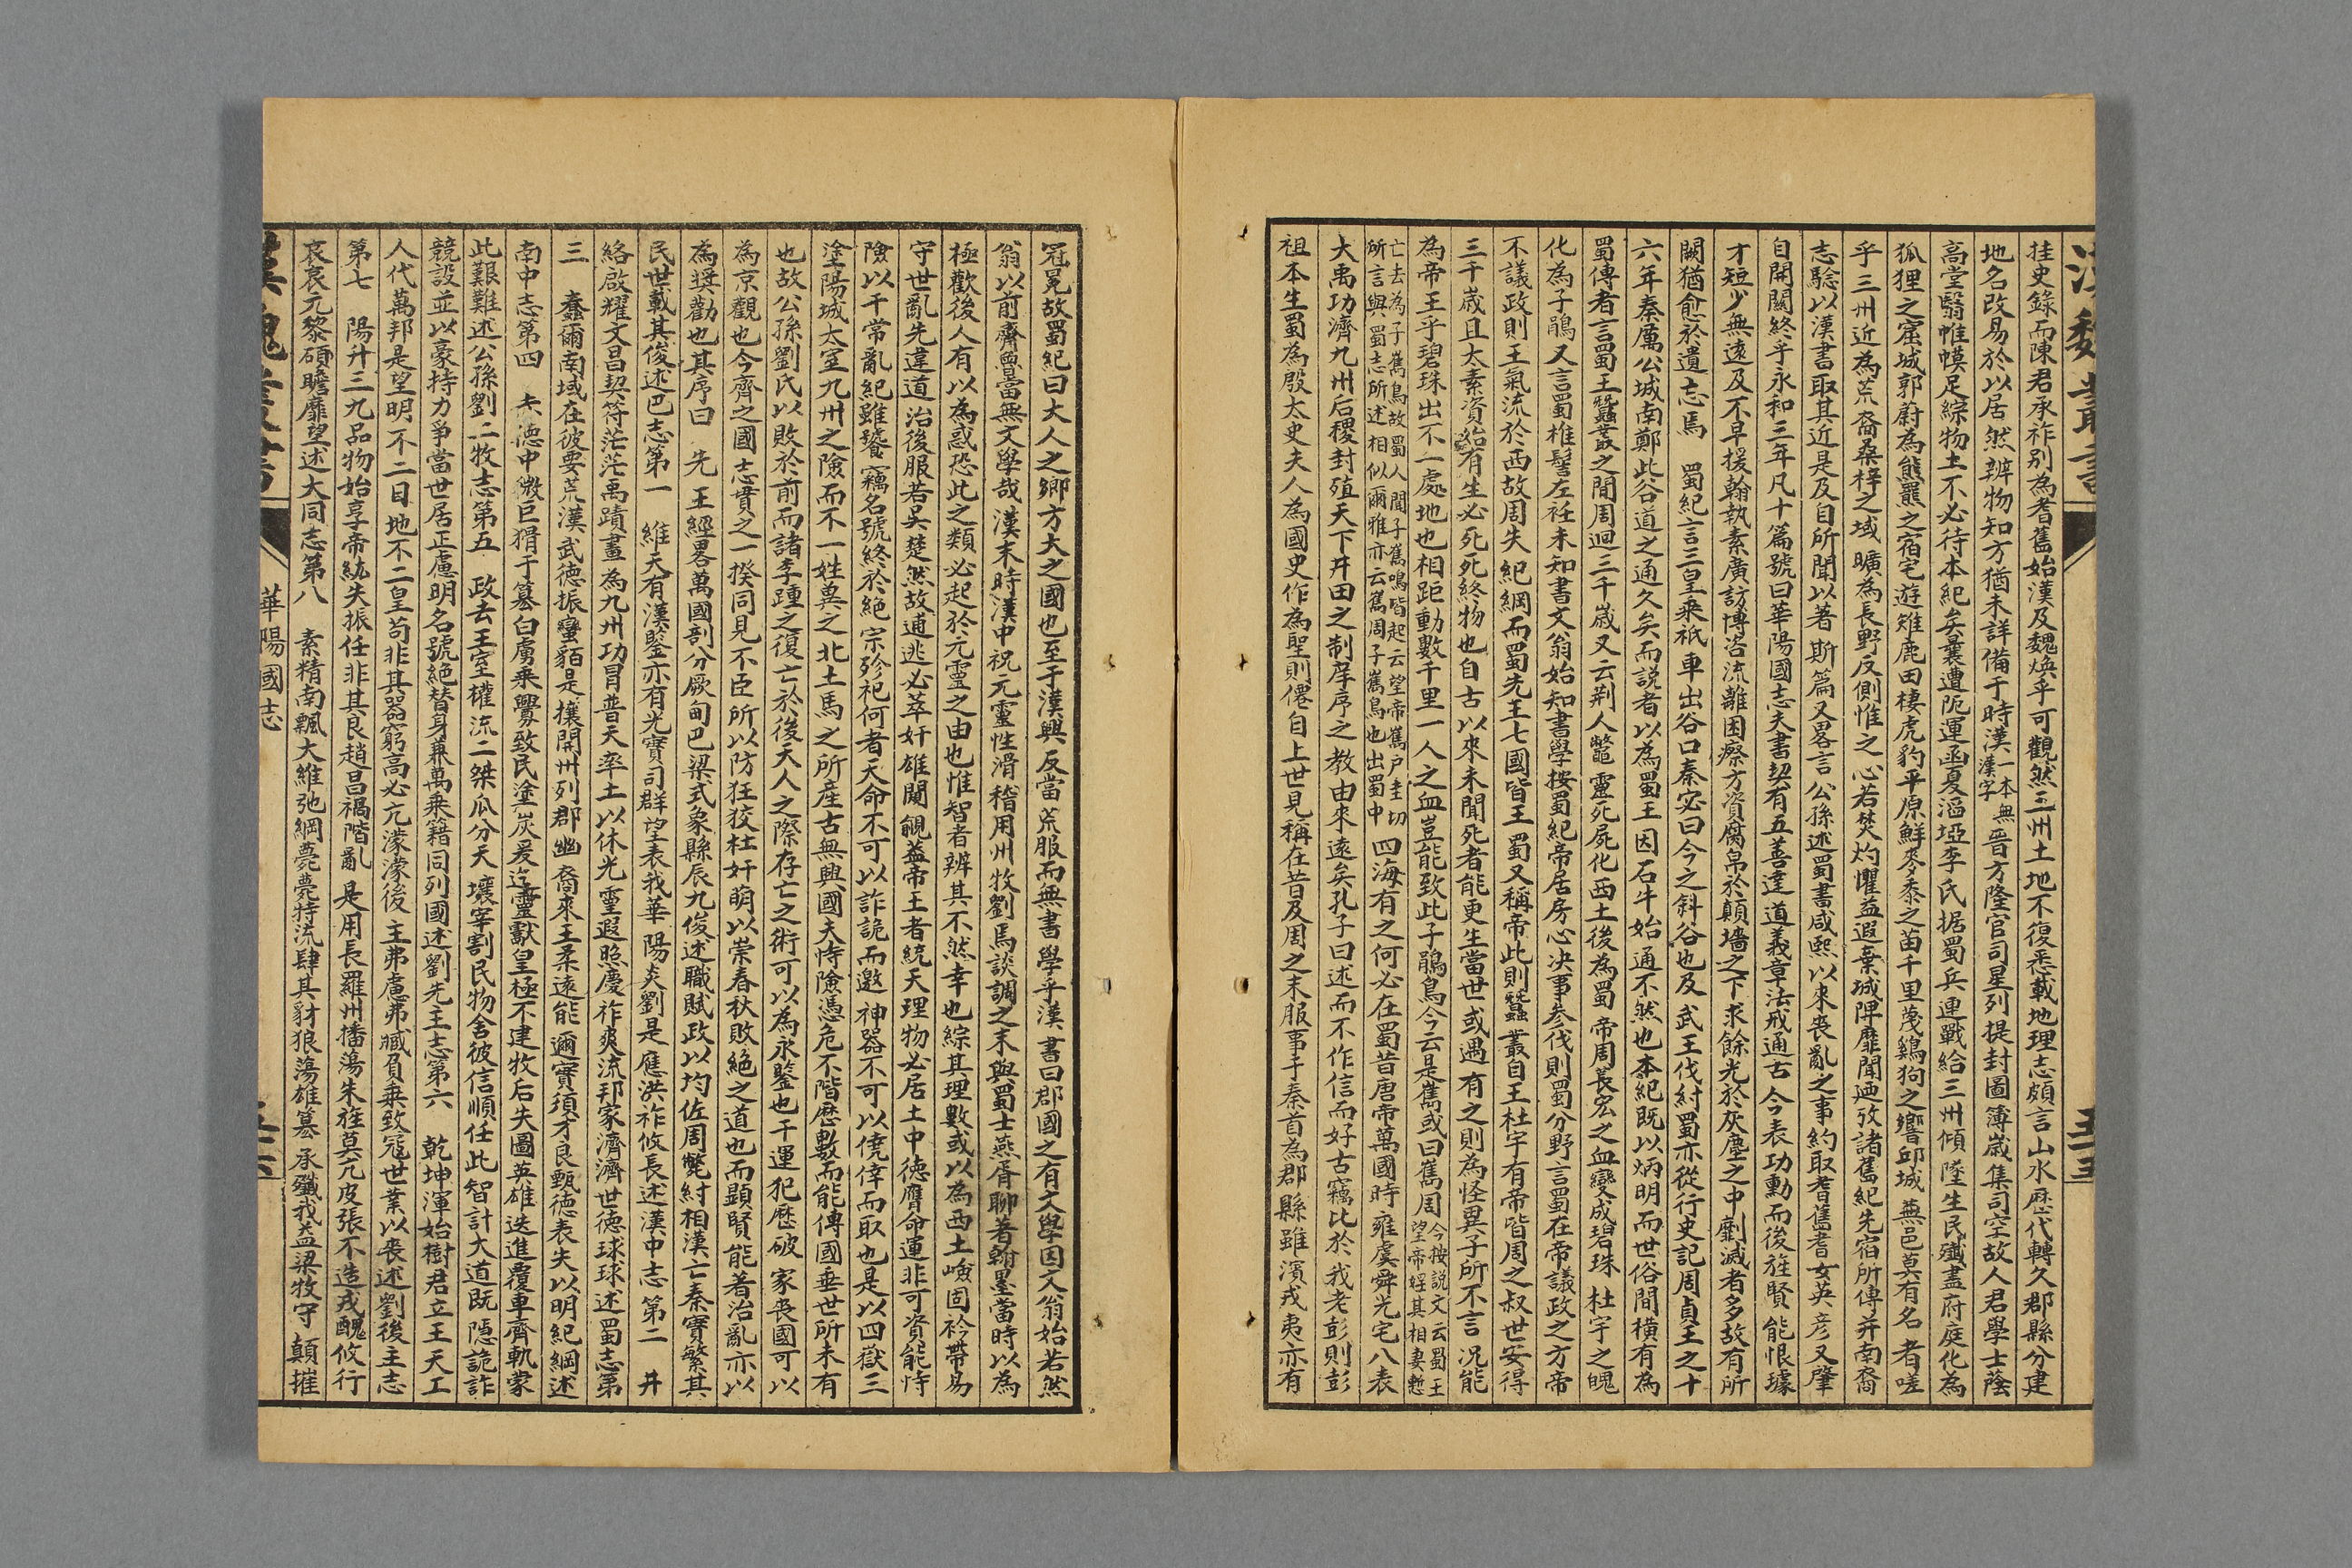 漢魏叢書
五三
挂史錄而陳君承祚别為耆舊始漢及魏煥乎可觀然三州土地不復悉載地理志頗言山水歴代轉久郡縣分建
地名改易於以居然辨物知方猶未詳備于時漢一本無漢字晉方隆官司星列提封圖簿歳集司空故人君學士蔭
高堂翳帷幙足綜物土不必待本紀矣曩遭阨運函夏滔堙李氏据蜀兵連戰給三州傾墜生民殲盡府庭化為
狐狸之窟城郭蔚為熊羆之宿宅遊雉鹿田棲虎豹平原鮮麥黍之苗千里蔑鷄狗之響邱城蕪邑莫有名者嗟
乎三州近為荒裔桑梓之域曠為長野反側惟之心若焚灼懼益遐棄城陴靡聞廼攷諸舊紀先宿所傳并南裔
志驗以漢書取其近是及自所聞以著斯篇又畧言公孫述蜀書咸熙以來喪亂之事約取耆舊耆女英彦又肇
自開闢終乎永和三年凡十篇號曰華陽國志夫書契有五善達道義章法戒通古今表功勳而後旌賢能恨璩
才短少無遠及不早援翰執素廣訪博咨流離困瘵方資腐帛於顛墻之下求餘光於灰塵之中劘滅者多故有所
闕猶愈於遺志焉　蜀紀言三皇乘祇車出谷口秦宓曰今之斜谷也及武王伐紂蜀亦從行史記周貞王之十
六年秦厲公城南鄭此谷道之通久矣而説者以為蜀王因石牛始通不然也本紀既以炳明而世俗間横有為
蜀傳者言蜀王蠶叢之間周迴三千歳又云荆人鼈靈死屍化西土後為蜀帝周萇宏之血變成碧珠杜宇之魄
化為子鵑又言蜀椎髻左衽未知書文翁始知書學按蜀紀帝居房心决事参伐則蜀分野言蜀在帝議政之方帝
不議政則王氣流於西故周失紀綱而蜀先王七國皆王蜀又稱帝此則蠶叢自王杜宇有帝皆周之叔世安得
三千歳且太素資始有生必死死終物也自古以來未聞死者能更生當世或遇有之則為怪異子所不言况能
為帝王乎碧珠出不一處地也相距動數千里一人之血豈能致此子鵑鳥今云是雟或曰雟周今按説文云蜀王望帝婬其相妻慙
亡去為子雟鳥故蜀人聞子雟鳴皆起云望帝雟户圭切所言與蜀志所述相似爾雅亦云雟周子雟鳥也出蜀中四海有之何必在蜀昔唐帝萬國時雍虞舜光宅八表
大禹功濟九州后稷封殖天下井田之制庠序之教由來遠矣孔子曰述而不作信而好古竊比於我老彭則彭
祖本生蜀為殷太史夫人為國史作為聖則僊自上世見稱在昔及周之末服事于秦首為郡縣雖濱戎夷亦有
冠冕故蜀紀曰大人之鄉方大之國也至于漢興反當荒服而無書學乎漢書曰郡國之有文學因文翁始若然
翁以前齊魯當無文學哉漢末時漢中祝元靈性滑稽用州牧劉焉談調之末與蜀士燕胥聊著翰墨當時以為
極歡後人有以為惑恐此之類必起於元靈之由也惟智者辨其不然幸也綜其理數或以為西土嶮固衿帶易
守世亂先違道治後服若吳楚然故逋逃必萃奸雄闚覦葢帝王者統天理物必居土中德膺命運非可資能恃
險以干常亂紀雖饕竊名號終於絶宗殄祀何者天命不可以詐詭而邀神器不可以僥倖而取也是以四嶽三
塗陽城太室九州之險而不一姓冀之北土馬之所産古無興國夫恃險憑危不階歴數而能傳國垂世所未有
也故公孫劉氏以敗於前而諸李踵之復亡於後天人之際存亡之術可以為永鑒也干運犯歴破家喪國可以
為京觀也今齊之國志貫之一揆同見不臣所以防狂狡杜奸萌以崇春秋敗絶之道也而顯賢能著治亂亦以
為奬勸也其序曰　先王經畧萬國剖分厥甸巴梁式象縣辰九俊述職賦政以均佐周斃紂相漢亡秦寶繁其
民世載其俊述巴志第一　維天有漢鑒亦有光實司群望表我華陽炎劉是應洪祚攸長述漢中志第二　井
絡啟耀文昌契符茫茫禹蹟畫為九州功冒普天率土以休光靈遐照慶祚爽流邦家濟濟世德球球述蜀志第
三　蠢爾南域在彼要荒漢武德振蠻貊是攘開州列郡幽裔來王柔遠能邇寶須才良甄德表失以明紀綱述
南中志第四　赤德中微巨猾于纂白虜乘釁致民塗炭爰迄靈獻皇極不建牧后失圖英雄迭進覆車齊軌蒙
此艱難述公孫劉二牧志第五　政去王室權流二桀瓜分天壤宰割民物舍彼信順任此智計大道既隱詭詐
競設並以豪持力爭當世居正慮明名號絶替身兼萬乘籍同列國述劉先王志第六　乾坤渾始樹君立王天工
人代萬邦是望明不二日地不二皇苟非其器窮高必亢濛濛後主弗慮弗臧負乘致冦世業以喪述劉後主志
第七　陽升三九品物始亨帝紘失振任非其良趙昌禍階亂是用長羅州播蕩朱旌莫亢皮張不造戎醜攸行
哀哀元黎碩瞻靡望述大同志第八　素精南飄大維弛綱薨薨特流肆其豺狼蕩雄纂承殲我益梁牧守顛摧
漢魏叢書
華陽國志